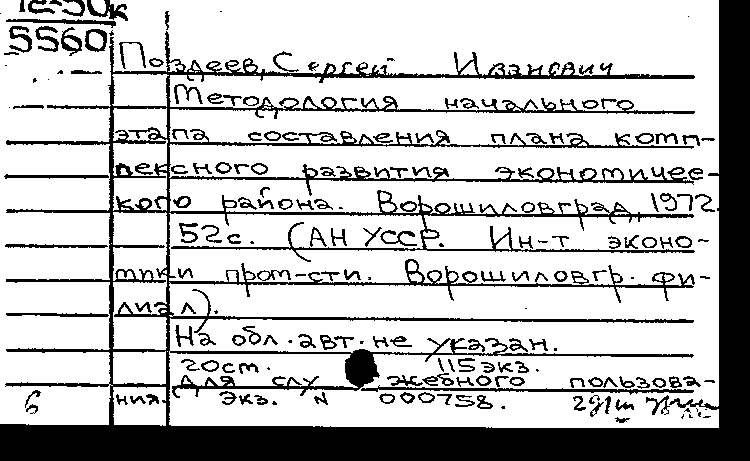 72-50к
5560
Поздеев, Сергей Иванович
Методология начального
этапа составления плана комп-
лексного развития экономичес-
кого района. Ворошиловград, 1972.
52с. (АН УССР. Ин-т эконо-
мики пром-сти. Ворошиловгр. фи-
лиал).
На обл. авт. не указан.
20ст. 115экз.
Для служебного пользова-
ния. Экз. N 000758.
б